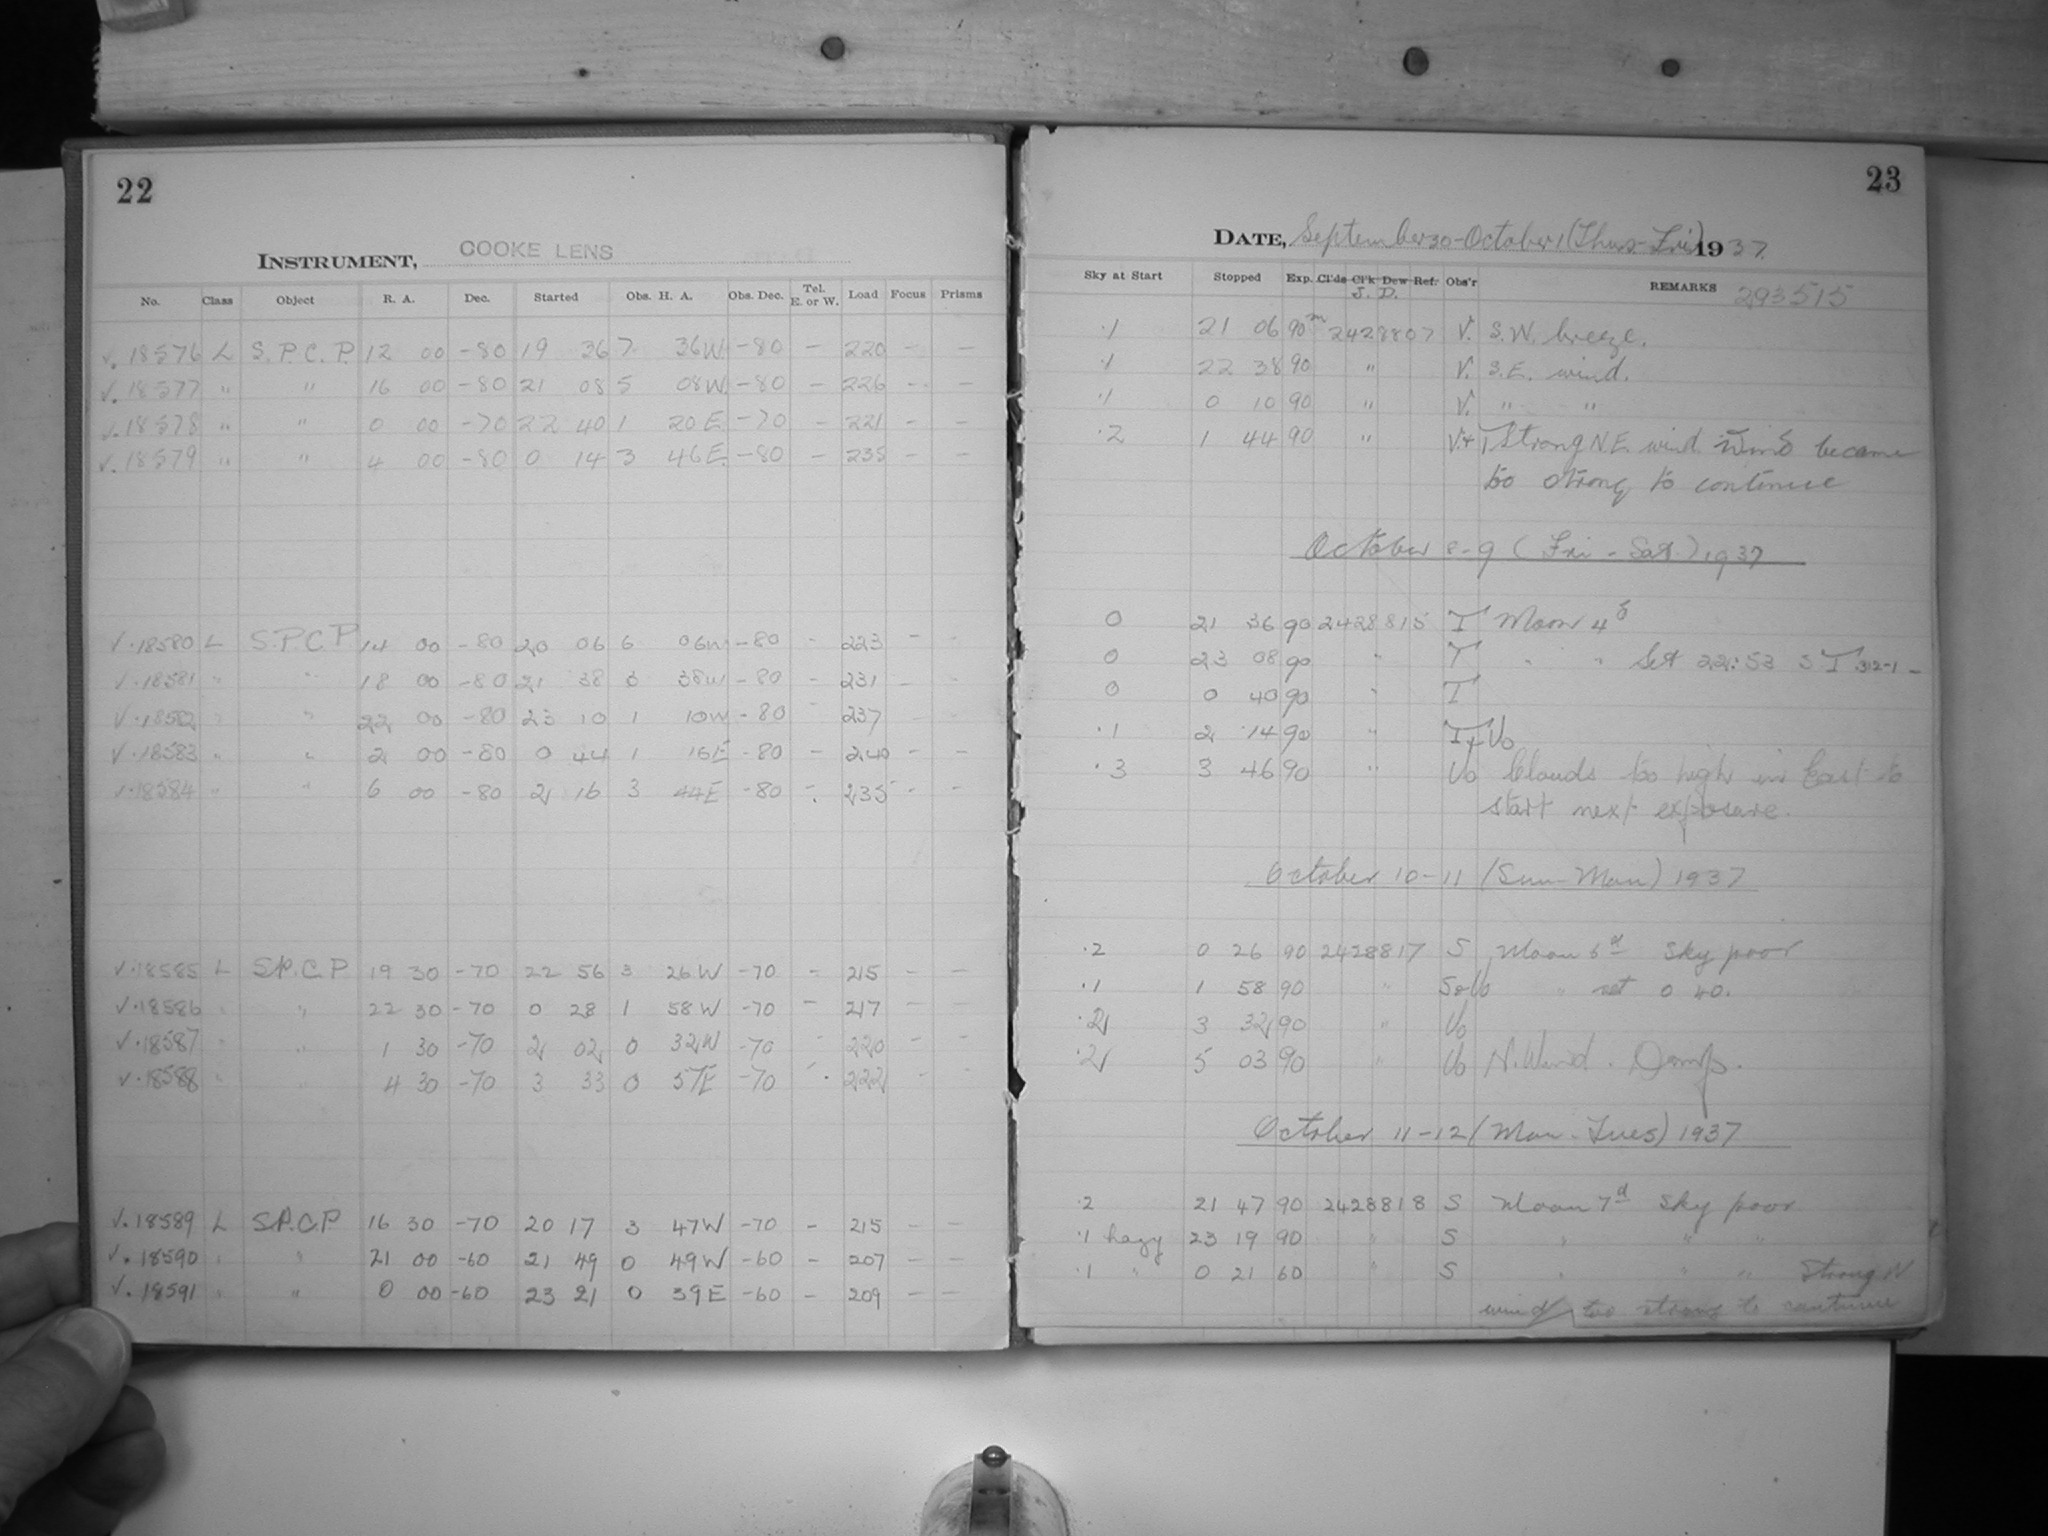 22
INSTRUMENT, COOKE LENS
No. Class Object R. A. Dec. Started Obs. H. A. Obs. Dec. Tel. E. or W. Load Focus Prisms
√. 18576 L S.P.C.P. 12 00 -80 19 36 7 36W -80 - 220 - -
√. 18577 " " 16 00 -80 21 08 5 08W -80 - 226 - -
√. 18578 " " 0 00 -70 22 40 1 20E -70 - 221 - -
√. 18579 " " 4 00 -80 0 14 3 46E -80 - 235 - -
√. 18580 L S.P.C.P 14 00 -80 20 06 6 06W -80 - 223 - -
√. 18581 " " 18 00 -80 21 38 3 38W -80 - 231 - -
√. 18582 " " 22 00 -80 23 10 1 10W -80 - 237 - -
√. 18583 " " 2 00 -80 0 44 1 16E -80 - 240 - -
√. 18584 " " 6 00 -80 2 16 3 44E -80 - 235 - -
√. 18585 L S.P.C.P 19 30 -70 22 56 3 26W -70 - 215 - -
√. 18586 " " 22 30 -70 0 28 1 58W -70 - 217 - -
√. 18587 " " 1 30 -70 2 02 0 32W -70 - 220 - -
√. 18588 " " 4 30 -70 3 33 0 57E -70 - 222 - -
√. 18589 L S.P.C.P 16 30 -70 20 17 3 47W -70 - 215 - -
√. 18590 " " 21 00 -60 21 49 0 49W -60 - 207 - -
√. 18591 " " 0 00 -60 23 21 0 39E -60 - 209 - -
23
DATE, September 30-October 1 (Thurs-Fri) 1937.
Sky at Start Stopped Exp. Cl'ds Cl'k Dew Ref. Obs'r REMARKS 293515
J. D.
.1 21 06 90m 2428807 V. S.W. breeze.
.1 22 38 90 " V. S.E. wind.
.1 0 10 90 " V. " "
.2 1 44 90 " V.+T Strong N.E. wind. Wind became
too strong to continue
October 8-9 (Fri-Sat.) 1937
0 21 36 90 2428815 T Moon 4d
0 23 08 90 " T " " Set 22:53 S T
0 0 40 90 " T
.1 2 14 90 " T+Vo
.3 3 46 90 " Vo Clouds too high in East to
start next exposure.
October 10-11 (Sun-Mon) 1937
.2 0 26 90 2428817 S Moon 6d Sky poor
.1 1 58 90 " S&Vo " set 0 40.
.2 3 32 90 " Vo
.2 5 03 90 " Vo N. Wind. Damp.
October 11-12 (Mon-Tues) 1937
.2 21 47 90 2428818 S Moon 7d Sky poor
.1 hazy 23 19 90 " S " " "
.1 " 0 21 60 " S " " " Strong N
wind too strong to continue